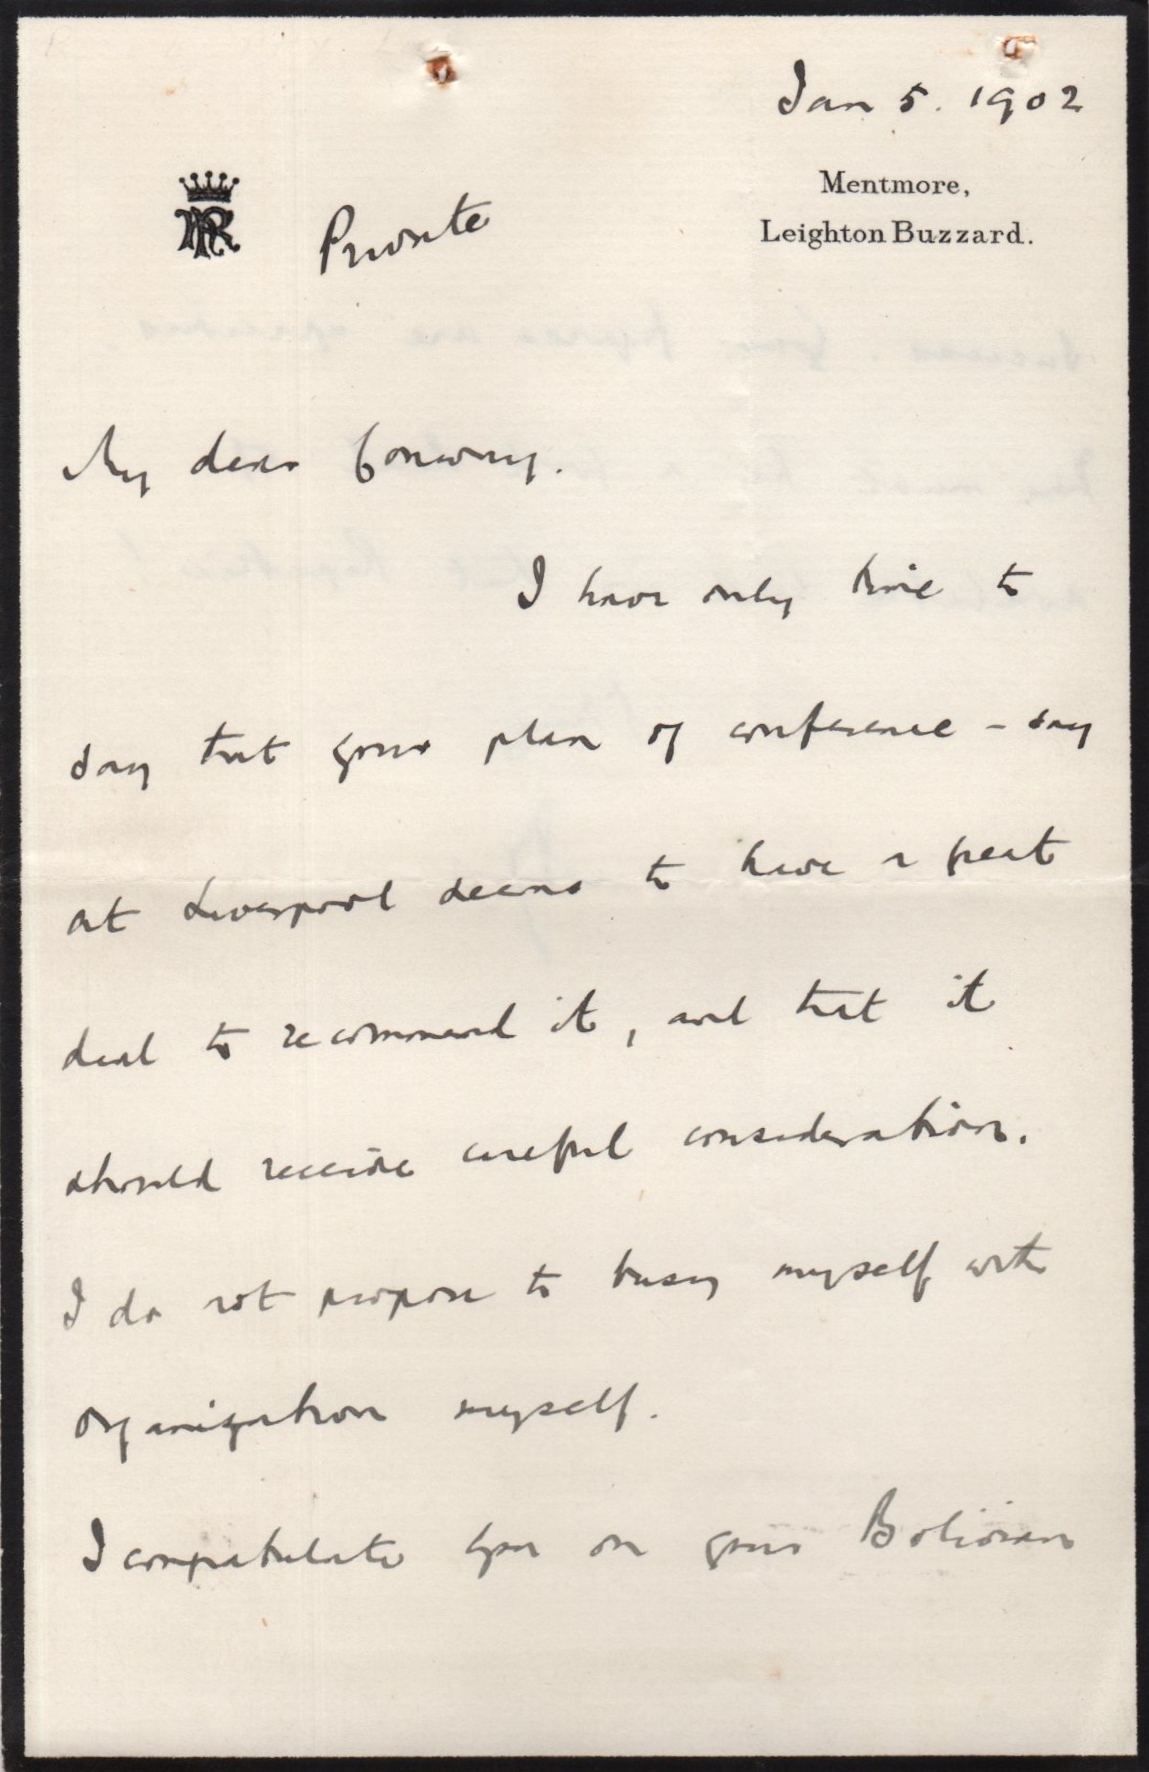 Jan 5. 1902
Mentmore,
Leighton Buzzard.
Private
My dear Conway.
I have only time to
say that your plan of conference - say
at Liverpool seems to have a great
deal to recommend it, and that it
should receive careful consideration.
I do not propose to busy myself with
organization myself.
I congratulate you on your Bolivian